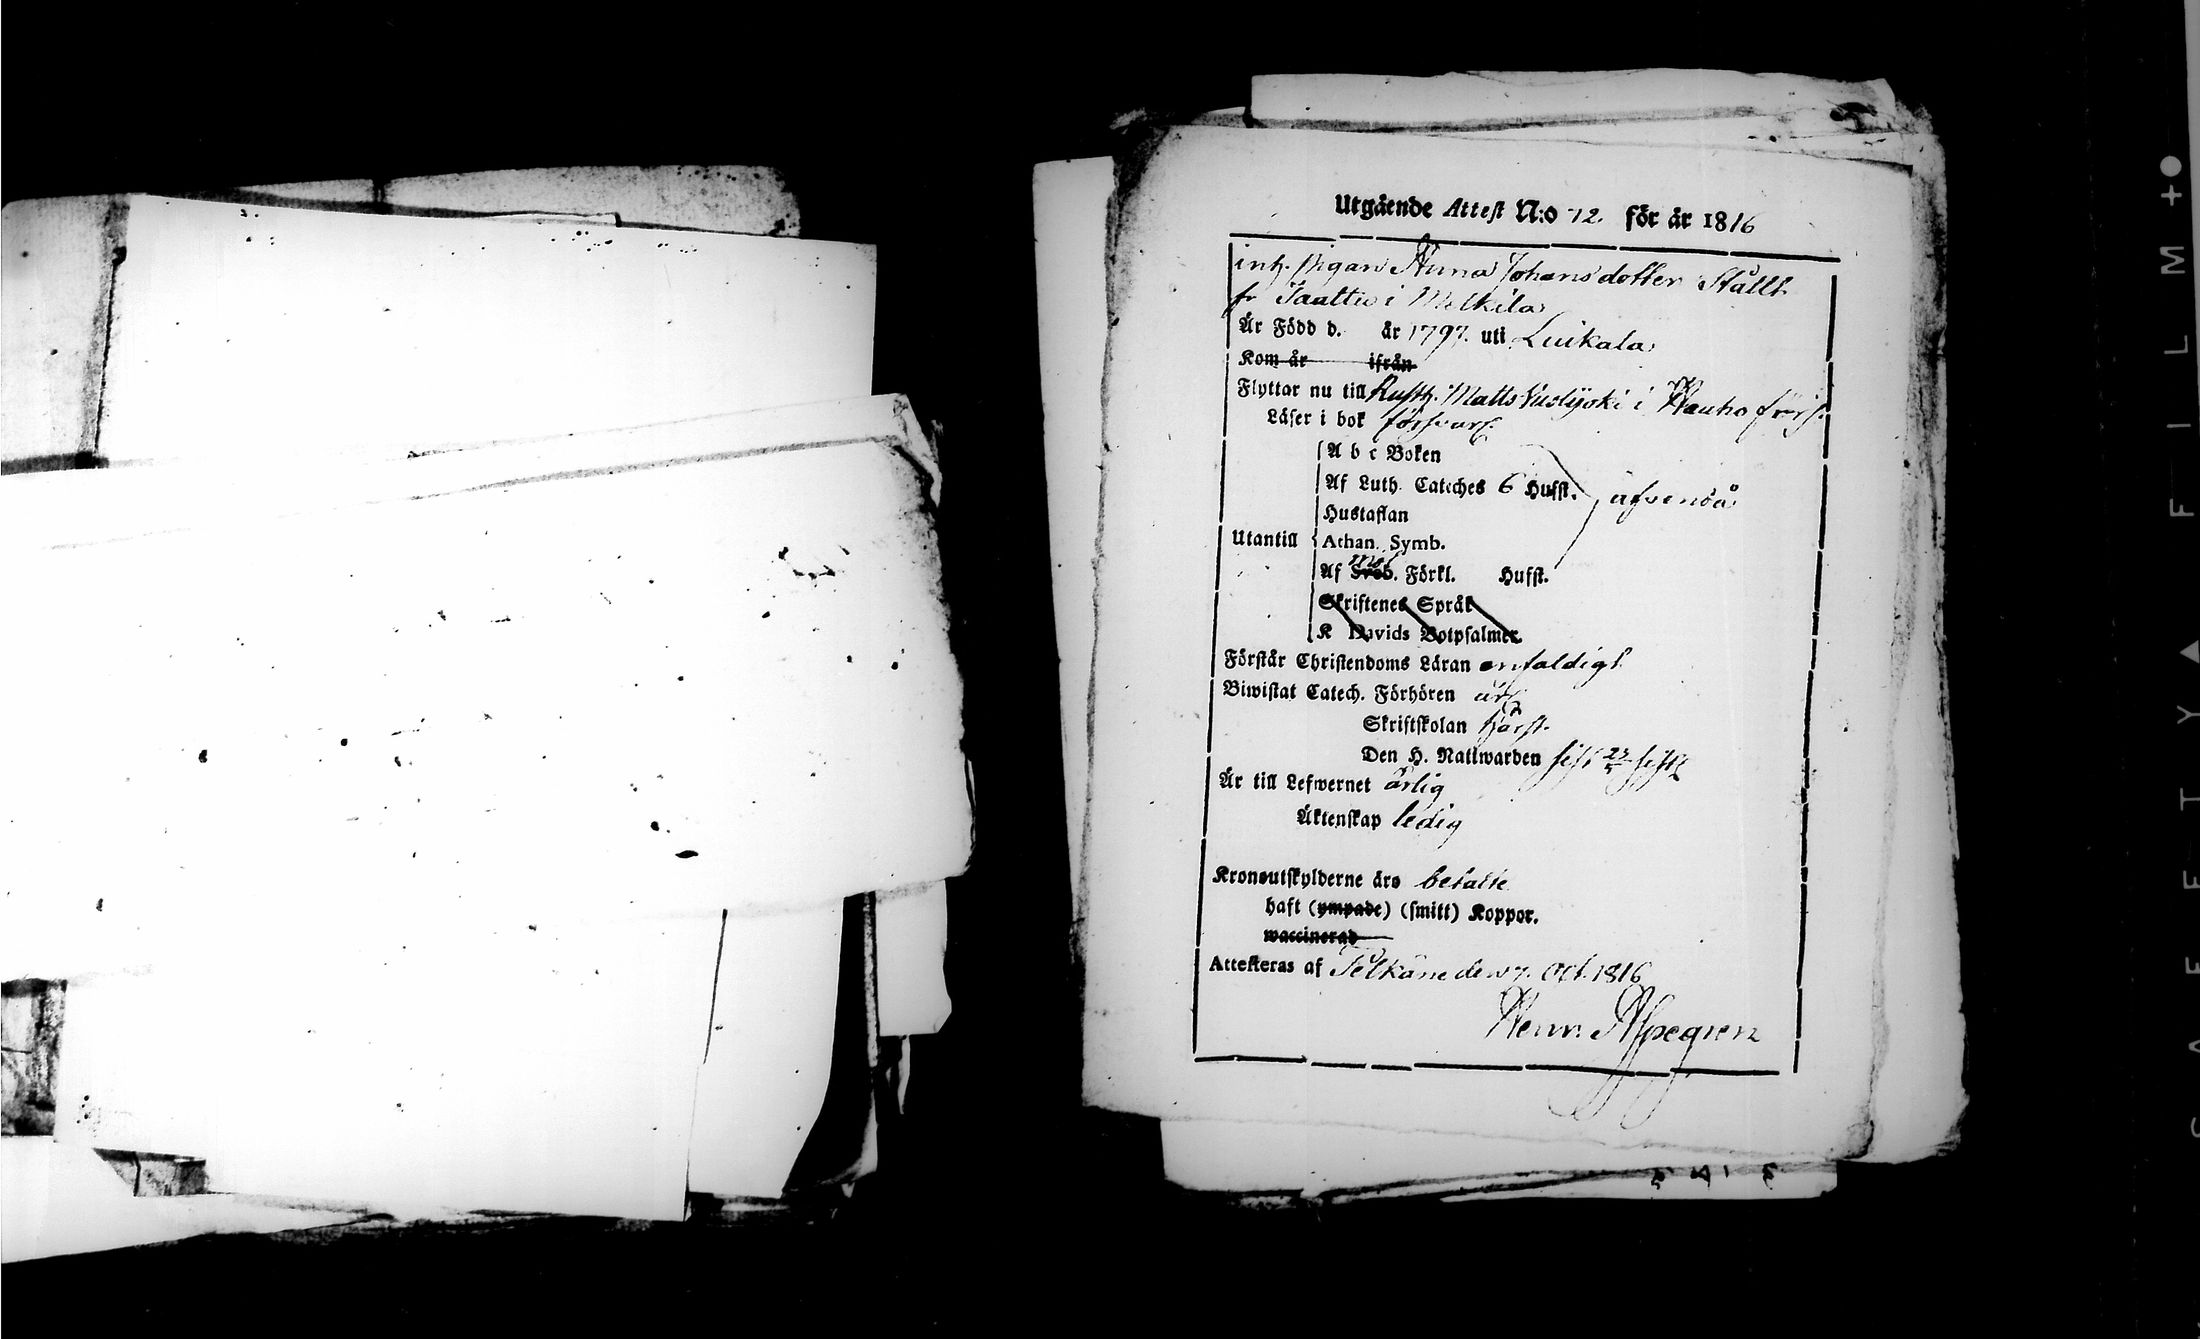 Utgående Attest N:o 12. för år 1816
inh. Pigan Anna Johansdotter Stållt
fr Taattio i Melkila
Är Född d. år 1797. uti Luikala
Kom år ifrån
Flyttar nu till Rusth. Matts i Hauho förs.
Läser i bok försvarl.
A b c Boken
Af Luth. Cateches 6 Hufst. äfvenså
Hustaflan
Utantill Athan. Symb.
Af Sveb. Förkl. Hufst.
Skriftenes Språk
K Davids Botpsalmer
Förstår Christendoms Läran enfaldigt
Biwistat Catech. Förhören årl
Skriftskolan
Den H. Nattwarden sist 22
Är till Lefwernet ärlig
Äktenskap ledig
Kronoutskylderne äro betalte
haft (ympade) (smitt) Koppor.
waccinerad
Attesteras af Pelkäne den 7. Oct. 1816
Henr. Alpegren
SAFETY▲FILM+●